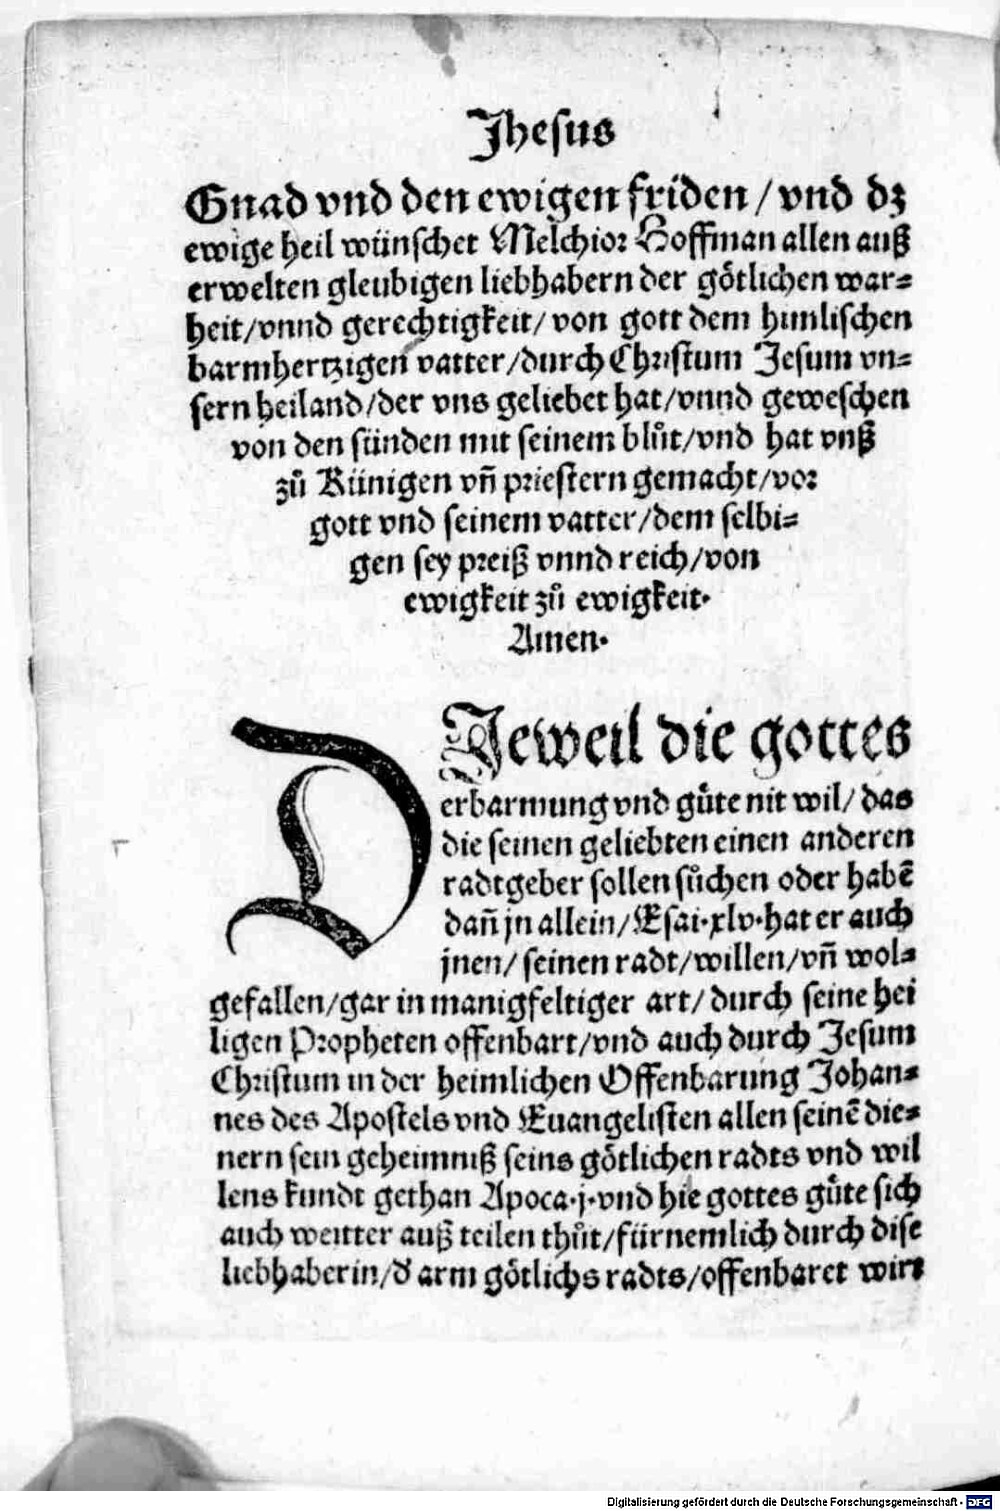 Jhesus
Gnad vnd den ewigen friden / vnd dz
ewige heil wünschet Melchior Hoffman allen auß
erwelten gleubigen liebhabern der götlichen war=
heit/vnnd gerechtigkeit/ von gott dem himlischen
barmhertzigen vatter/durch Christum Jesum vn=
sern heiland/der vns geliebet hat/vnnd geweschen
von den sünden mit seinem blůt/vnd hat vnß
zů Künigen vñ priestern gemacht/vor
gott vnd seinem vatter/dem selbi=
gen sey preiß vnnd reich/von
ewigkeit zů ewigkeit.
Amen.
DJeweil die gottes
erbarmung vnd gůte nit wil/ das
die seinen geliebten einen anderen
radtgeber sollen sůchen oder habē
dañ jn allein/Esai.xlv.hat er auch
jnen/ seinen radt/willen/vñ wol=
gefallen/gar in manigfeltiger art/ durch seine hei
ligen Propheten offenbart/vnd auch durch Jesum
Christum in der heimlichen Offenbarung Johan=
nes des Apostels vnd Euangelisten allen seinē die=
nern sein geheimniß seins götlichen radts vnd wil
lens kundt gethan Apoca.j.vnd hie gottes gůte sich
auch weitter auß teilen thůt/fürnemlich durch dise
liebhaberin/d' arm götlichs radts/offenbaret wirt
Digitalisierung gefördert durch die Deutsche Forschungsgemeinschaft - DFG